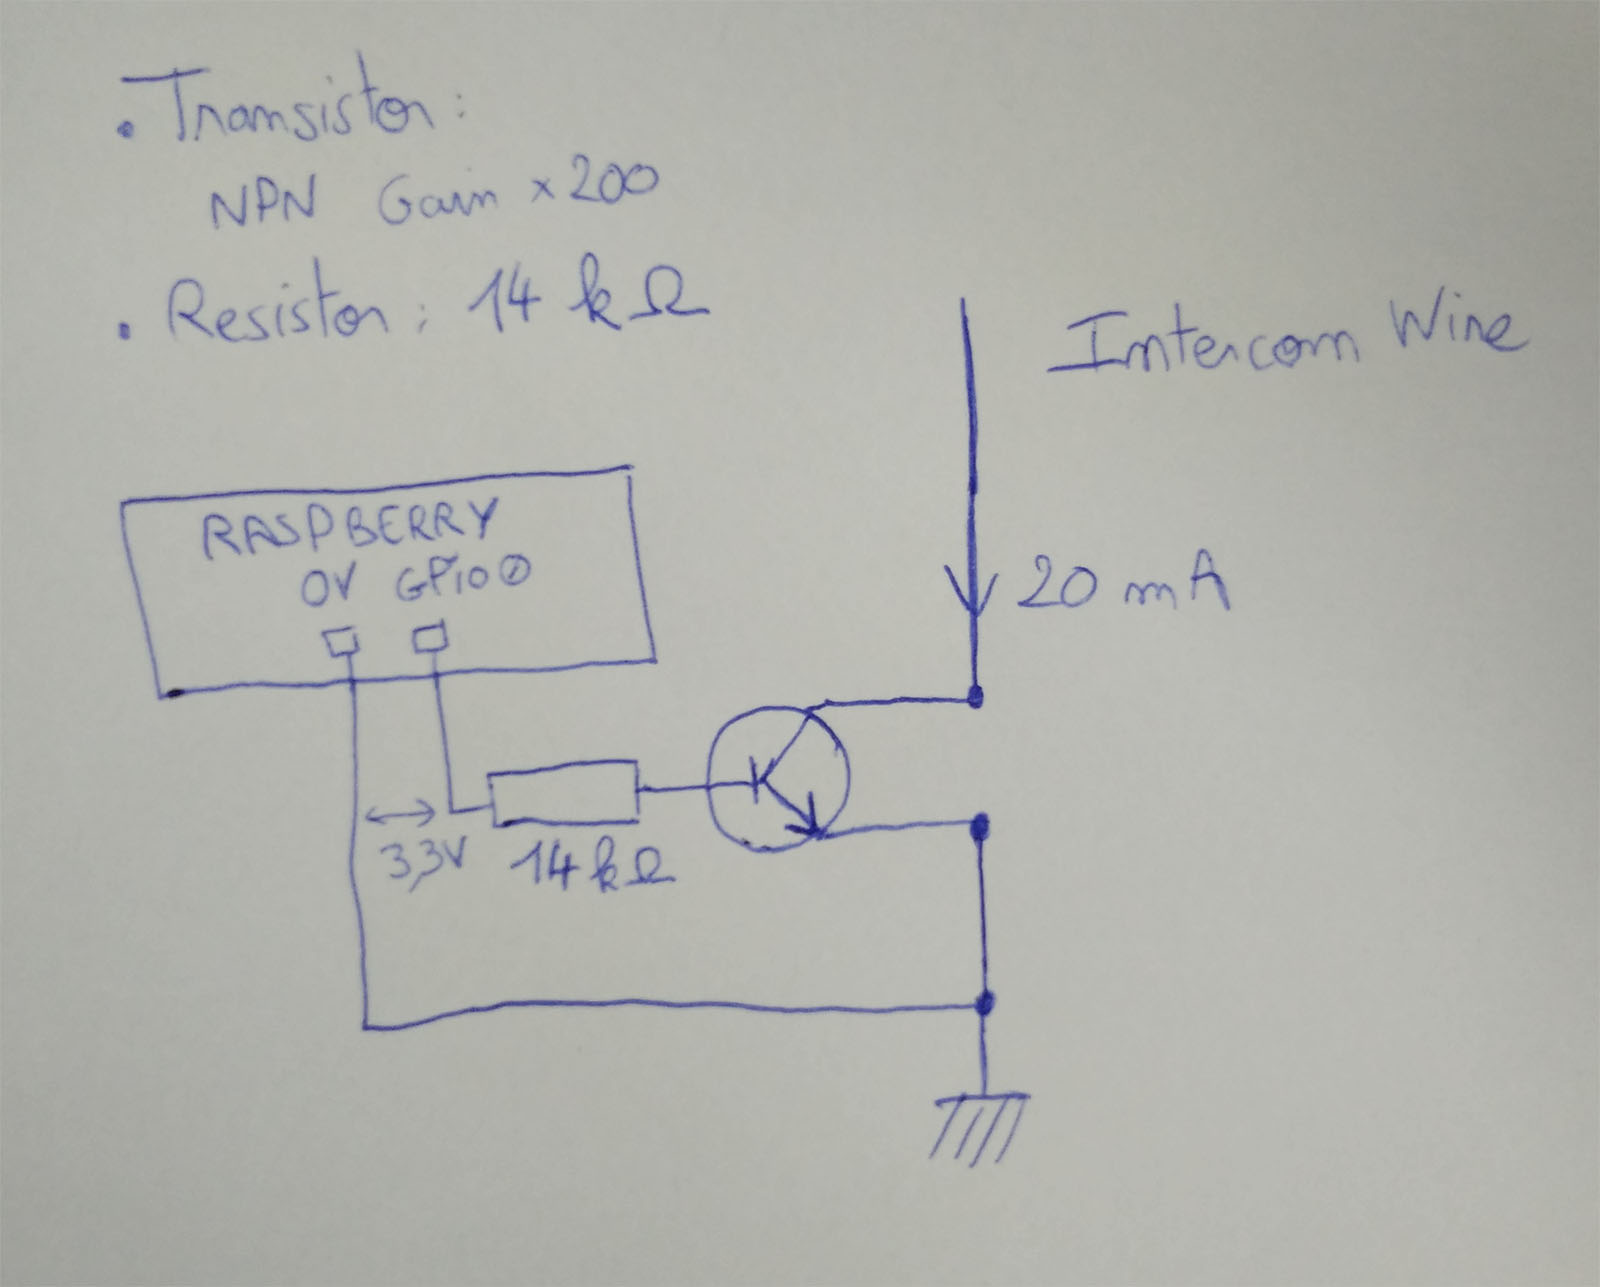 • Transistor :
NPN Gain × 200
• Resistor : 14 kΩ
Intercom Wire
RASPBERRY
0V GPIO 0
20 mA
3,3V 14 kΩ